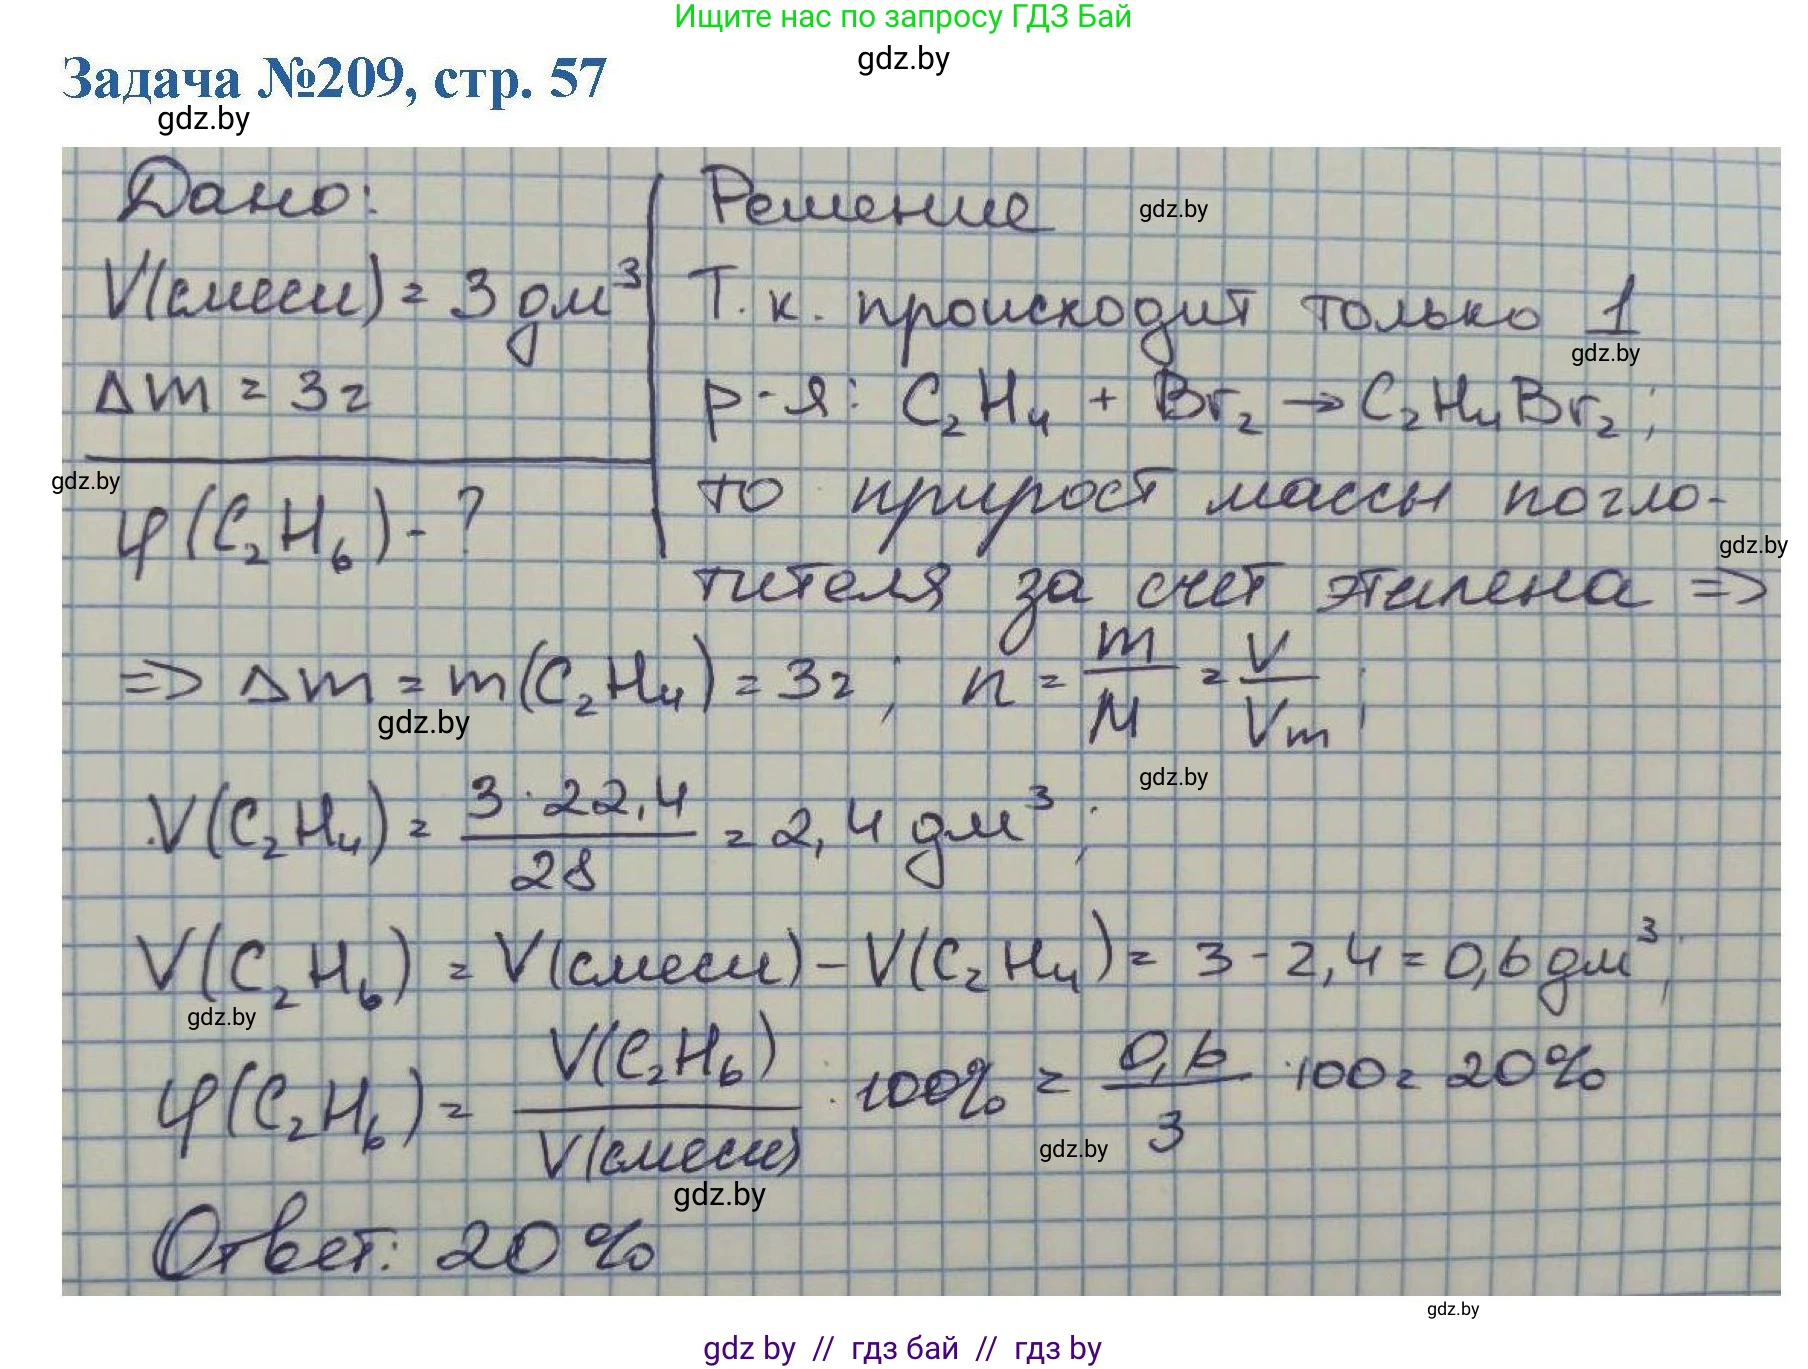 Ищите нас по запросу ГДЗ Бай
gdz.by
Задача №209, стр. 57
gdz.by
Дано:
V(смеси) = 3 дм³
Δm = 3г
gdz.by
φ(C₂H₆) - ?
Решение
gdz.by
Т.к. происходит только 1
gdz.by
р-я: C₂H₄ + Br₂ → C₂H₄Br₂;
то прирост массы погло-
gdz.by
тителя за счет этилена =>
=> Δm = m(C₂H₄) = 3г; n = m/M = V/Vm;
gdz.by
gdz.by
V(C₂H₄) = 3·22,4/28 = 2,4 дм³;
V(C₂H₆) = V(смеси) - V(C₂H₄) = 3 - 2,4 = 0,6 дм³;
gdz.by
φ(C₂H₆) = V(C₂H₆)/V(смеси) · 100% = 0,6/3 · 100 = 20%
gdz.by
gdz.by
Ответ: 20%
gdz.by
gdz by // гдз бай // гдз by